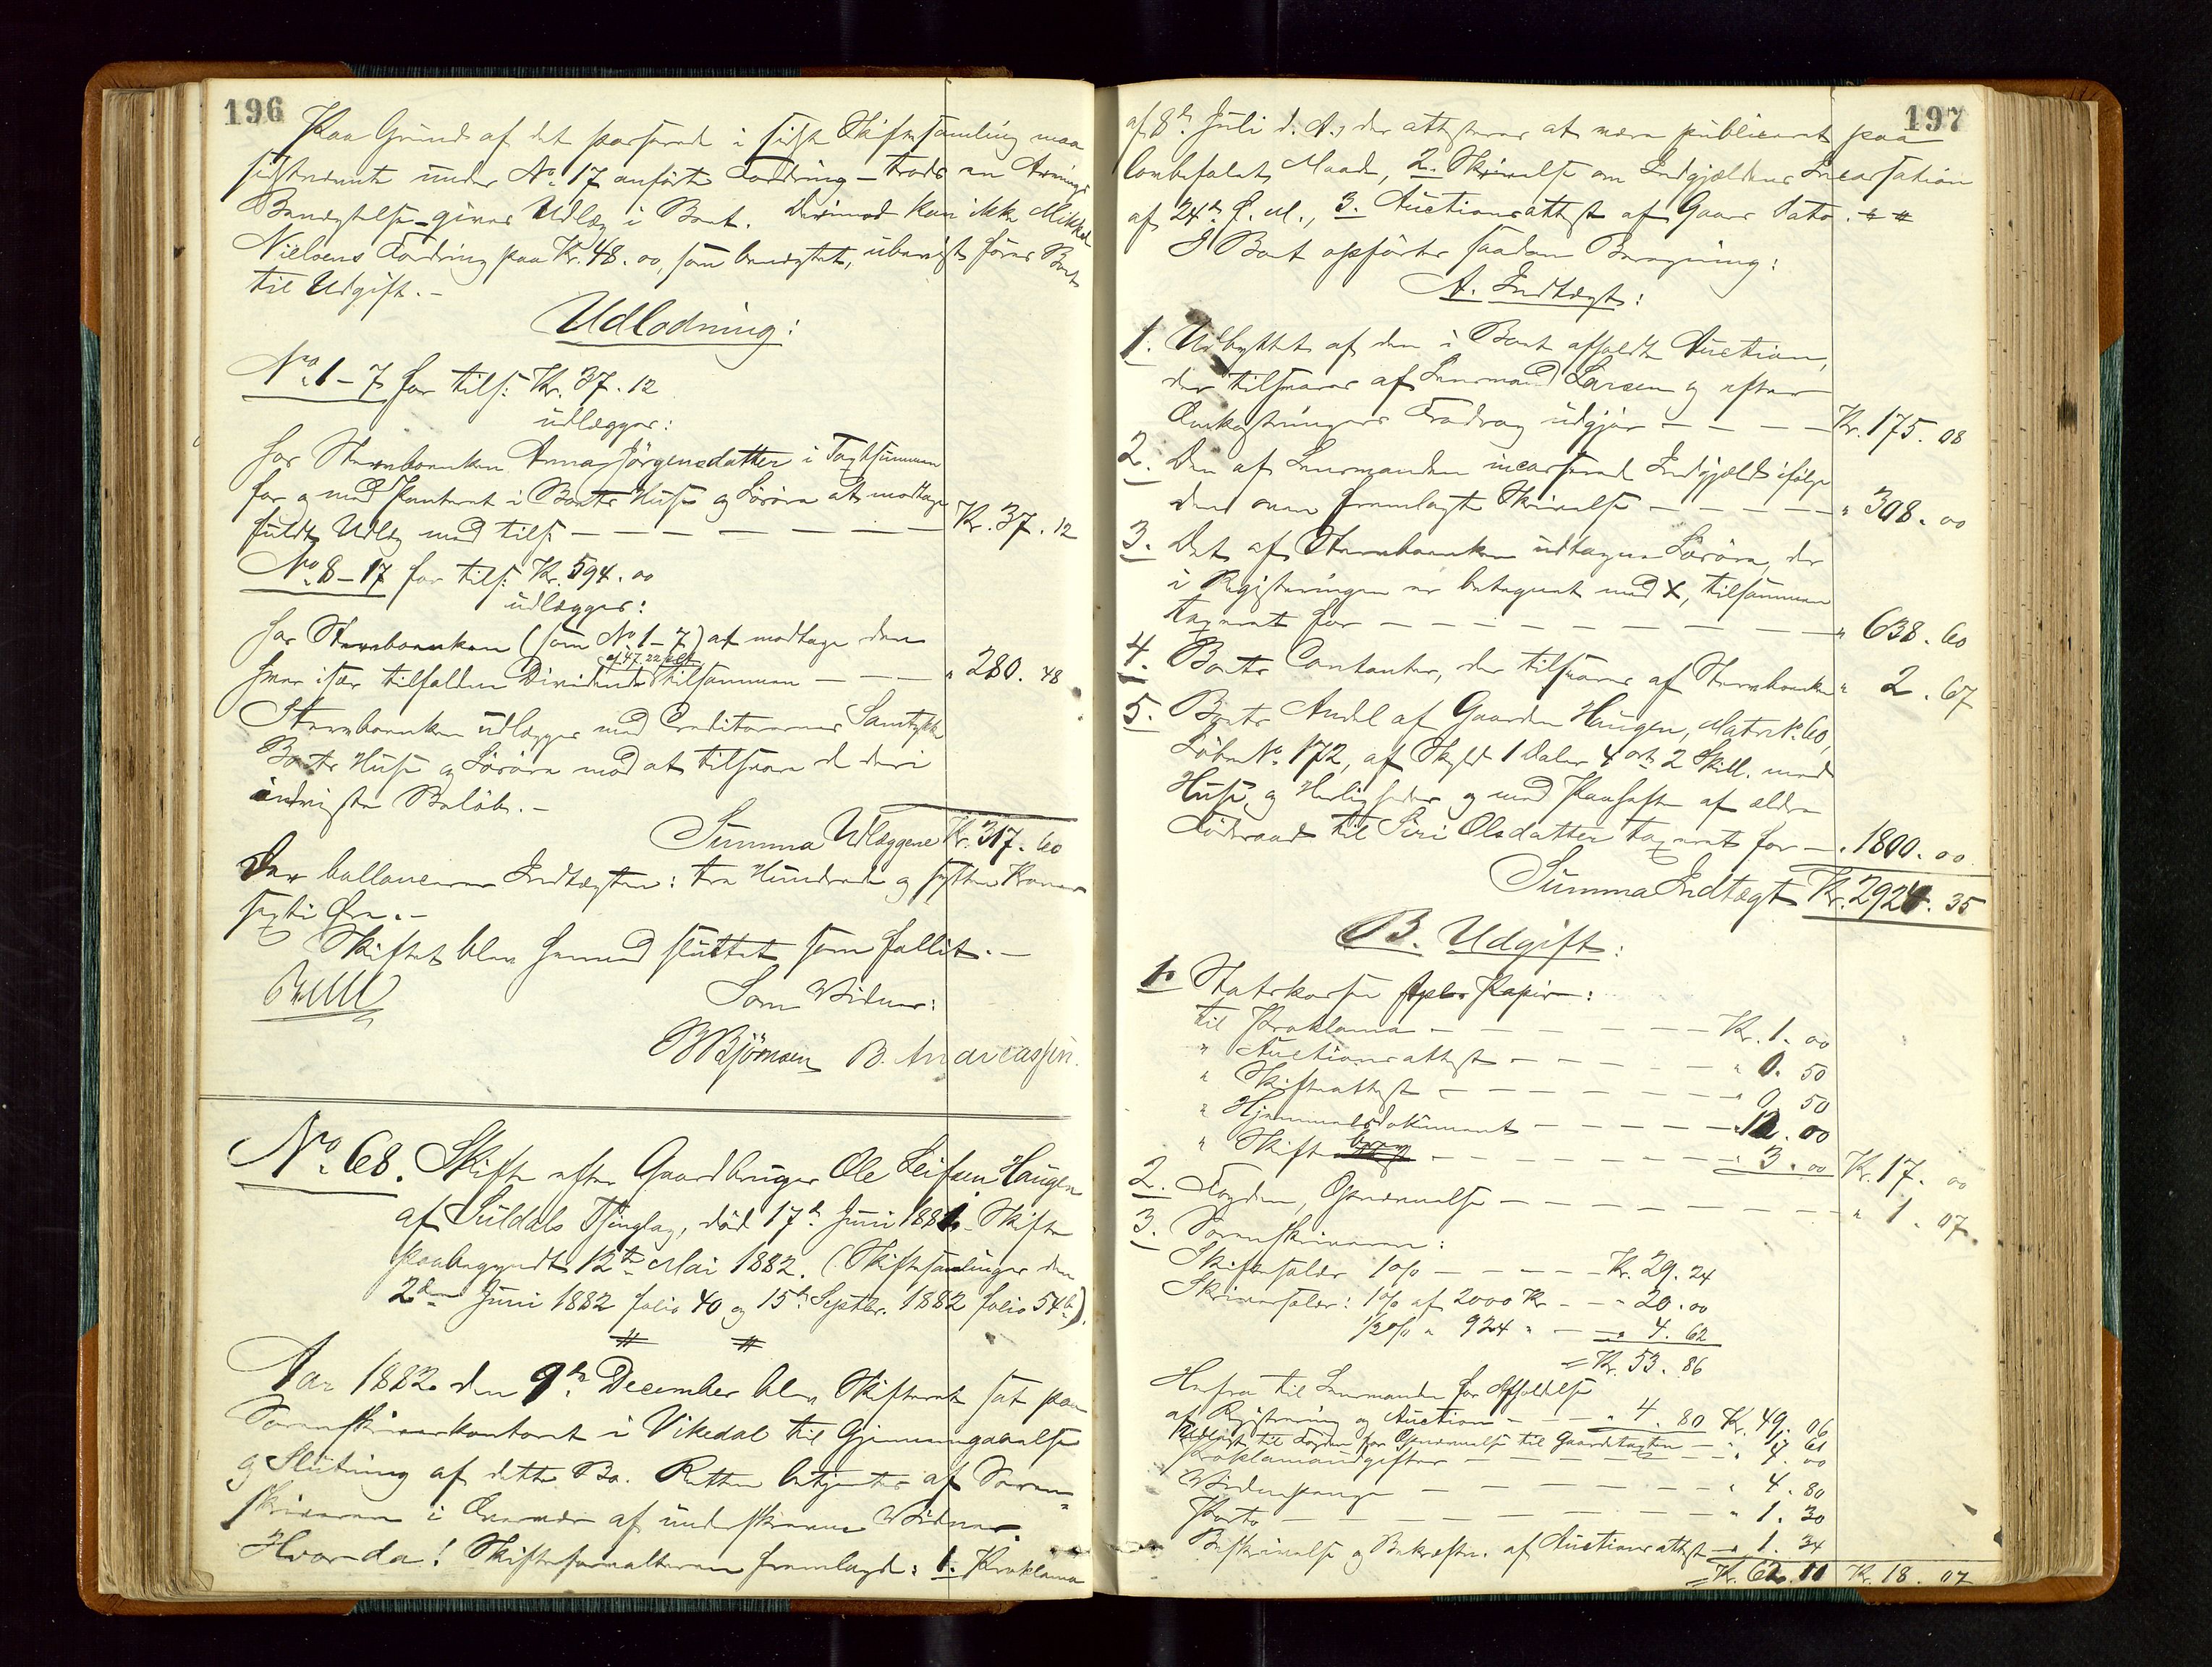 196
Paa Grund af det passerede i sidste Skiftesamling maa
sidstnævnte under No 17 anførte Fordring – trods en Arvings
Benægtelse – gives Udlæg i Boet. Derimod kan ikke Mikkel
Nielsens Fordring paa Kr. 48.00, som benægtet, ubevist føres Boet
til Udgift. –
Udlodning:
No 1–7 for tils: Kr. 37.12
udlægges:
har Stervboenken Anna Jørgensdatter i Taxtsummen
for og med Panteret i Boets Huse og Løsøre at modtage
fuldt Udlæg med tils – – – – – – Kr. 37.12
No 8–17 for tils: Kr. 594.00
udlægges:
har Stervboenken (som No 1–7) at modtage den
af 47.22 pCt
hver især tilfaldne Dividende tilsammen – – – " 280.48
Stervboenken udlægges med Creditorernes Samtykke
Boets Huse og Løsøre mod at tilsvare de deri
anviste Beløb. –
Summa Udlæggene Kr. 317.60
Der ballancerer Indtægten: tre Hundrede og sytten Kroner
sexti Øre. –
Skiftet blev hermed sluttet som fallit. –
Som Vidner:
Bjørnsen B. Andreassen.
No 68. Skifte efter Gaardbruger Ole Leifsen Haugen
af Suldals Thinglag, død 17de Juni 1881. Skifte
paabegyndt 12te Mai 1882. (Skiftesamlinger den
2den Juni 1882 folio 40 og 15de Septbr. 1882 folio 54b).
Aar 1882 den 9de December blev Skifteret sat paa
Sorenskriverkontoret i Vikedal til Gjennemgaaelse
og Slutning af dette Bo. Retten betjentes af Soren-
skriveren i Overvær af underskrevne Vidner.
Hvor da! Skifteforvalteren fremlagde: 1. Proklama
197
af 8de Juli d. A., der attesteres at være publiceret paa
lovbefalet Maade, 2. Skrivelse om Indgjældens Incassation
af 24de f. M., 3. Auctionsattest af Gaars Dato.
I Boet opførtes saadan Beregning:
A. Indtægt:
1. Udbyttet af den i Boet afholdte Auction,
der tilsvares af Lensmand Larsen og efter
Omkostningers Fradrag udgjør – – – – Kr. 175.08
2. Den af Lensmanden incasserede Indgjæld ifølge
den oven fremlagte Skrivelse – – – – – " 308.00
3. Det af Stervboenken udtagne Løsøre, der
i Registeringen er betegnet med X, tilsammen
taxeret for – – – – – – – – – " 638.60
4. Boets Contanter, der tilsvares af Stervboenken " 2.67
5. Boets Andel af Gaarden Haugen, Matr. No 60,
Løbe No 172, af Skyld 1 Daler 4 ort 2 Skill. med
Huse og Herligheder og med Paahefte af ældre
Føderaad til Siri Olsdatter taxeret for – " 1800.00
Summa Indtægt Kr. 2924.35
B. Udgift:
1. Statskassen stplet Papir:
til Proklama – – – – – – Kr. 1.00
" Auctionsattest – – – – " 0.50
" Skifteattest – – – – – " 0.50
" Hjemmelsdokument – – – – " 12.00
" Skift – – – – – – " 3.00 Kr. 17.00
2. Fogden, Opnævnelse – – – – – – – – " 1.07
3. Sorenskriveren:
Skiftesalær 1% – – – – – Kr. 29.24
Skriversalær: 1% af 2000 Kr – – " 20.00
1/2% " 924 " – – " 4.62
= Kr. 53.86
Herfra til Lensmanden for Afholdelse
af Registrering og Auction – – – " 4.80 Kr. 49.06
Udlagt til Fogden for Opnævnelse til Gaardstaxten –
Proklamaudgifter – – – – – –
Vidnepenge – – – – – – – " 4.80
Porto – – – – – – – – " 1.30
Beskrivelse og Bekræftn. af Auctionsattest – " 1.34
Kr. 18.07